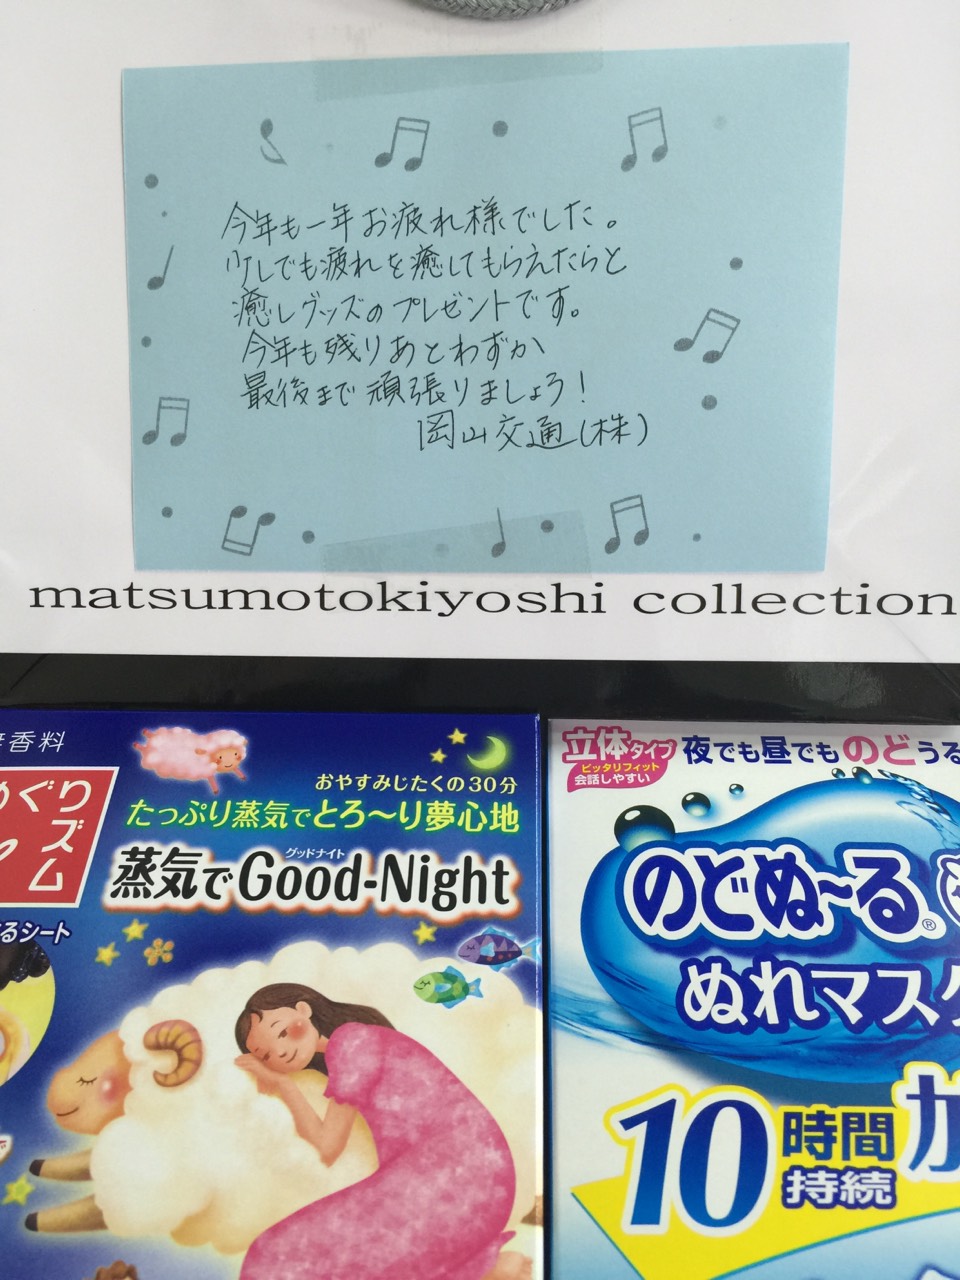 今年も一年お疲れ様でした。
少しでも疲れを癒してもらえたらと
癒しグッズのプレゼントです。
今年も残りあとわずか
最後まで頑張りましょう！
岡山交通(株)
matsumotokiyoshi collection
香料
めぐり
ズム
るシート
おやすみじたくの30分
たっぷり蒸気でとろ〜り夢心地
グッドナイト
蒸気でGood-Night
立体タイプ
ピッタリフィット
会話しやすい
夜でも昼でものどうる
のどぬ〜る®
ぬれマスク
10時間
持続